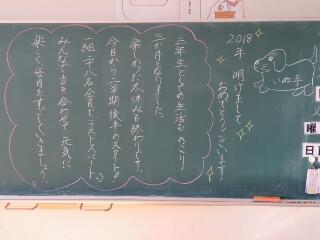 2018年 明けまして
おめでとうございます
いぬ年
三年生としての生活も のこり
三か月となりました。
楽しかった冬休みも終わりです。
今日から二学期後半のスタート！
一組二十八名全員でラストスパート
みんなで力を合わせて 元気に
楽しく、毎日をすごしていきましょう！
曜
日